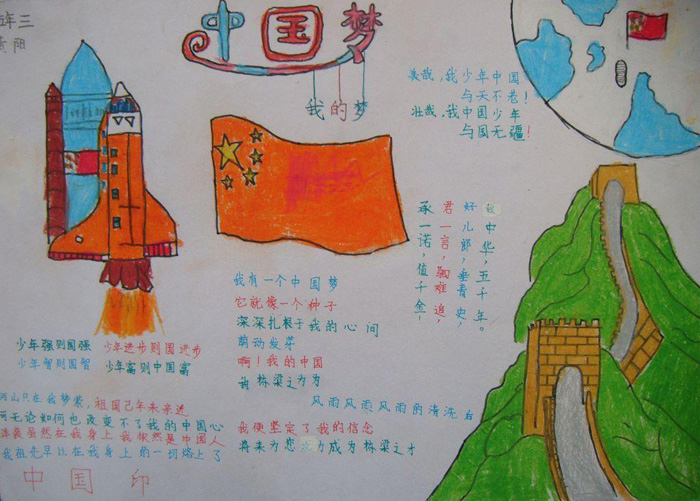 年三
阳
中国梦
我的梦
美哉,我少年中国
与天不老!
壮哉,我中国少年
与国无疆!
中华,五千年。
好儿郎,垂青史,
君一言,驷难追,
承一诺,值千金!
我有一个中国梦
它就像一个种子
深深扎根于我的心间
萌动发芽
啊!我的中国
栋梁之为为
少年强则国强 少年进步则国进步
少年智则国智 少年富则中国富
风雨风雨风雨的清洗后
山只在我梦萦,祖国已年未亲近
可无论如何也改变不了我的中国心
洋装虽然在我身上我依然是中国人
我祖先早以在我身上的一切烙上了
中国印
我便坚定了我的信念
将来为您 成为栋梁之才